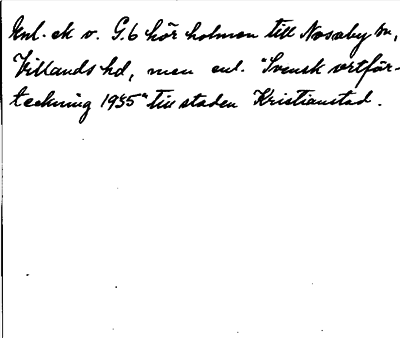 Enl. ek v. G.6 hör holmen till Nosaby sn,
Villands hd, men enl. "Svensk ortför-
teckning 1955" till staden Kristianstad.